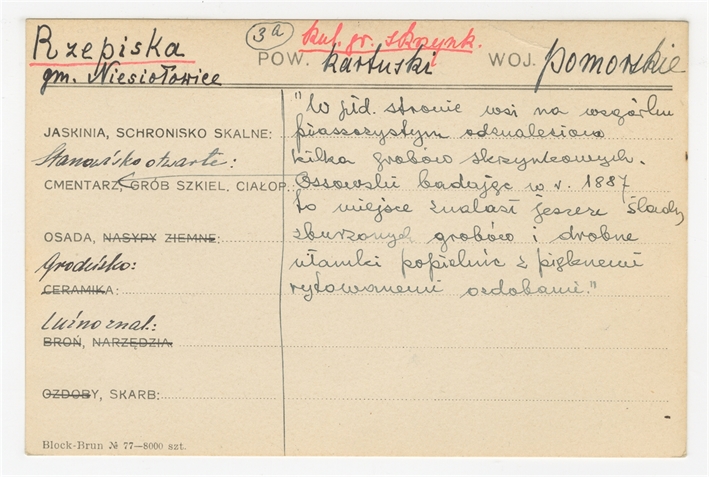 Rzepiska
3a
kul. gr. skrzynk.
gm. Niesiołowice
POW. kartuski
WOJ. pomorskie
"W płd. stronie wsi na wzgórku
JASKINIA, SCHRONISKO SKALNE: piaszczystym odnaleziono
Stanowisko otwarte: kilka grobów skrzynkowych.
CMENTARZ, GRÓB SZKIEL, CIAŁOP.: Ossowski badając w r. 1887
to miejsce znalazł jeszcze ślady
OSADA, NASYPY ZIEMNE: zburzonych grobów i drobne
Grodzisko: ułamki popielnic z pięknemi
CERAMIKA: rytowanemi ozdobami."
Luźno znal.:
BROŃ, NARZĘDZIA
OZDOBY, SKARB:
Block-Brun № 77—8000 szt.